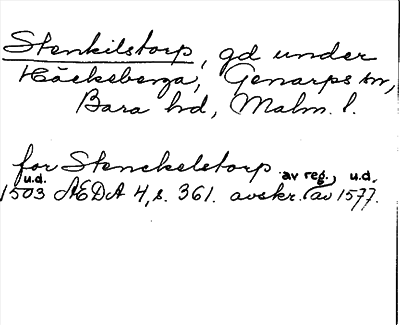 Stenkilstorp, gd under
Häckeberga, Genarps sn,
Bara hd, Malm. l.
for Stenckelstorp av reg., u.d.
u.d.
1503 ÆDA 4, s. 361. avskr. av 1577.